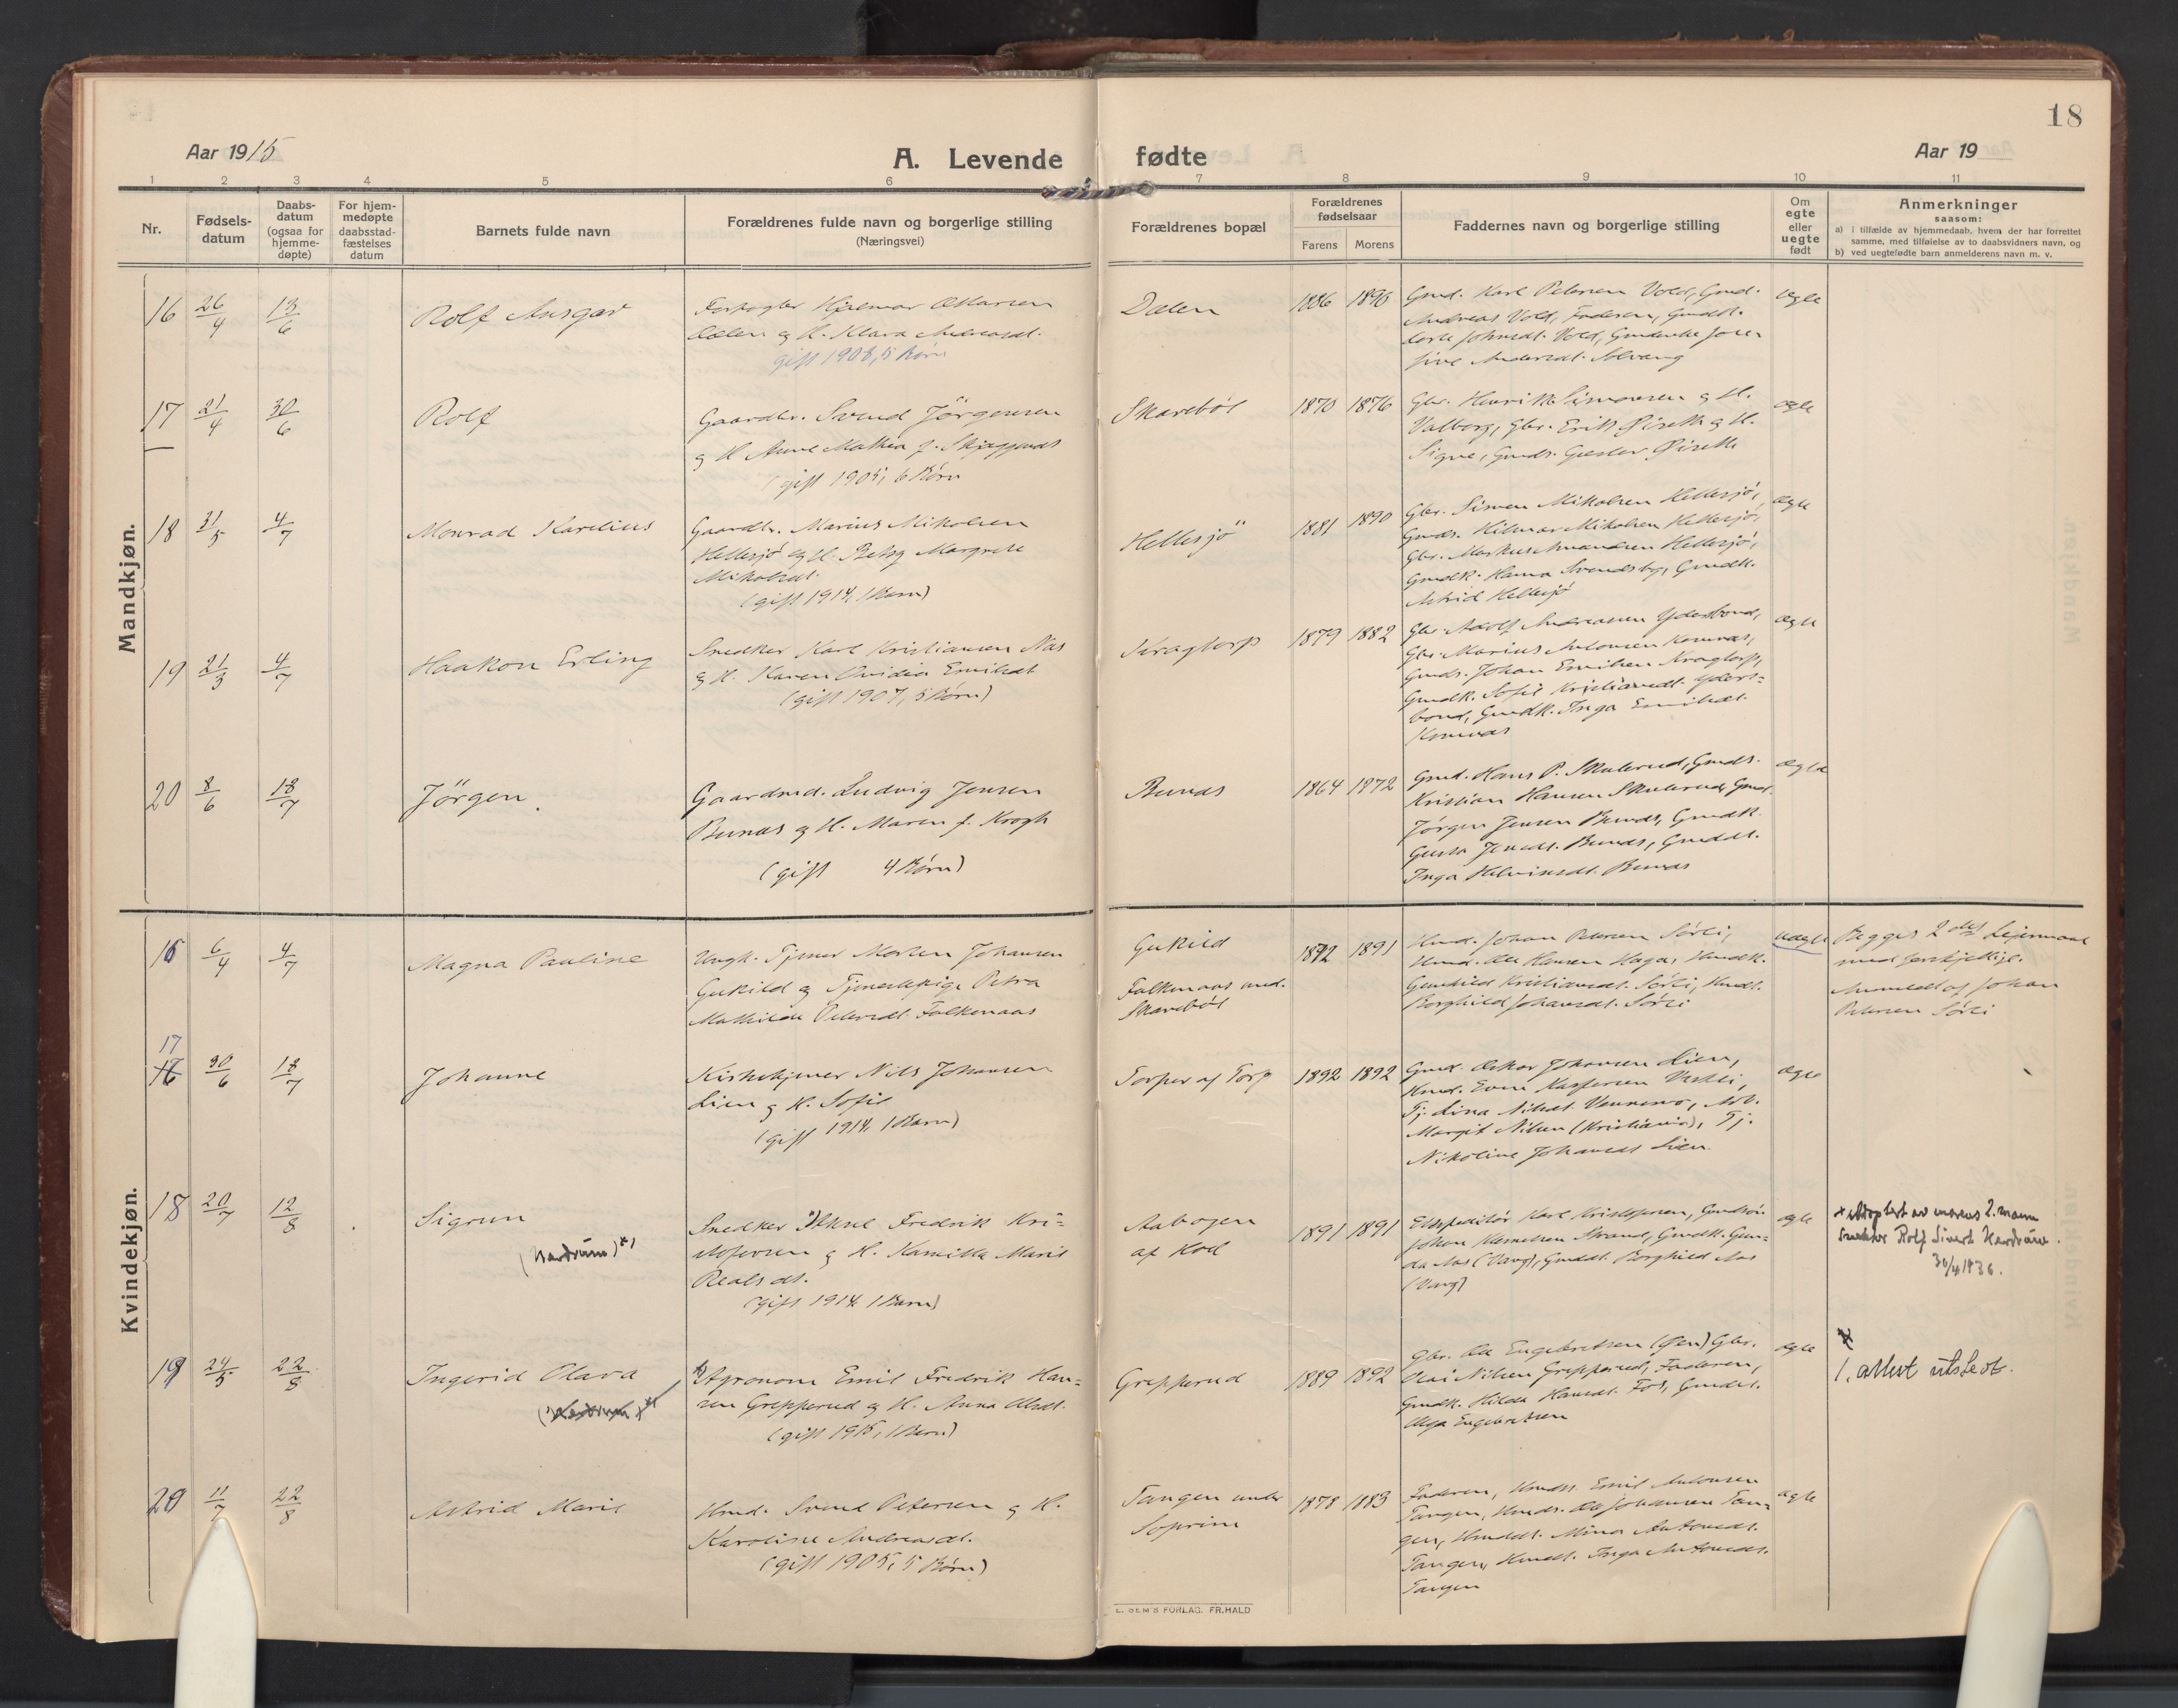 18
Aar 1915
A. Levende fødte
Aar 19
1 2 3 4 5 6 7 8 9 10 11
Nr.
Fødsels-
datum
Daabs-
datum
(ogsaa for
hjemme-
døpte)
For hjem-
medøpte
daabsstad-
fæstelses
datum
Barnets fulde navn
Forældrenes fulde navn og borgerlige stilling
(Næringsvei)
Forældrenes bopæl
Forældrenes
fødselsaar
Farens Morens
Faddernes navn og borgerlige stilling
Om
egte
eller
uegte
født
Anmerkninger
saasom:
a) i tilfælde av hjemmedaab, hvem der har forrettet
samme, med tilføielse av to daabsvidners navn, og
b) ved uegtefødte barn anmelderens navn m. v.
Mandkjøn.
16 26/4 13/6
Rolf Ansgar
Hjalmar
Dalen og H. Klara Andreasdt.
gift 1908, 5 Børn
Dalen
1886 1890
Gmd. Karl Petersen Vold, Gmd.
Andreas Vold, Faderen, Gmdk.
Johnsdt. Vold,
Andersdt. Solvang
ægte
17 21/4 30/6
Rolf
Gaardbr. Svend Jörgensen
og H. Anne Mathea f.
gift 1905, 6 Børn
Skarebøl
1870 1876
Gbr. Henrik Simonsen og H.
Valborg, Gbr. Erik og H.
Signe, Gmds.
ægte
18 31/5 4/7
Monrad Karelius
Gaardbr. Marius Mikalsen
Hellesjö og H. Betsy Margrete
Mikalsdt.
(gift 1914, 1 Barn)
Hellesjö
1881 1890
Gbr. Simen Mikalsen Hellesjö,
Gmds. Hilmar Mikalsen Hellesjö,
Gbr. Hellesjö,
Gmdk. Hanna Svendsby, Gmdk.
Astrid Hellesjö
ægte
19 21/3 4/7
Haakon Erling
Snedker Karl Kristiansen Næs
og H. Karen Ovidia Emilsdt
(gift 1907, 5 Børn)
Kragtorp
1879 1882
Gbr. Adolf Andreasen Ydersbond,
Gbr. Marius Antonsen
Gmds. Johan Emilsen Kragtorp,
Gmdk. Sofie Kristiansdt. Yders-
bond, Gmdk. Inga Emilsdt.
ægte
20 8/6 18/7
Jörgen
Gaardmd. Ludvig Jensen
Bunæs og H. Maren f. Krogh
(gift 4 Børn)
Bunæs
1864 1872
Gmd. Hans P. Skulerud, Gmds.
Kristian Hansen Skulerud, Gmd.
Jörgen Jensen Bunæs, Gmdk.
Gusta Bunæs, Gmddt.
Inga Bunæs
ægte
Kvindekjøn.
16 6/4 4/7
Magna Pauline
Ungk. Tjener Morten Johansen
Gukild og Tjenestepige Petra
Mathilde Petersdt. Falkenaas
Gukild
Falkenaas und.
Skarebøl
1892 1891
Hmd. Johan Petersen Sörli,
Hmd. Ole Hansen Haga, Hmdk.
Gunhild Kristiansdt. Sörli, Hmdt.
Borghild Johansdt. Sörli
uægte
Begges 2det Leiermaal
med forskjellige.
Anmeldt af Johan
Petersen Sörli
17
16 30/6 18/7
Johanne
Kirketjener Nils Johansen
Lien og H. Sofie
(gift 1914, 1 Barn)
Torper af Torp
1892 1892
Gmd. Oskar Johansen Lien,
Hmd. Even Kaspersen
Tj. Lina Nilsdt.
Margit Nilsen (Kristiania), Tj.
Nikoline Johansdt Lien
ægte
18 20/7 12/8
Sigrun
(Nerdrum)*)
Snedker Fredrik Kri-
stofersen og H. Kamilla Marie
(gift 1914, 1 Barn)
Aabogen
af Kod
1891 1891
Ekspeditör Karl Kristofersen,
Johan Strand, Gmdk. Gun-
da Aas (Vang), Gmddt. Borghild Aas
(Vang)
ægte
* adoptert av morens 2. mann
snekker Rolf Sivert Nerdrum.
30/4 1936.
19 24/5 22/8
Ingerid Olava
(Nerdrum)*)
*) Agronom Emil Fredrik Han-
sen Grepperud og H. Anna Olsdt.
(gift 1915, 1 Barn)
Grepperud
1889 1892
Gbr. Ole Engebretsen (Øen) Gbr.
Olai Nilsen Grepperud, Faderen,
Gmdk. Hilda Hansdt. Fos, Gmddt.
Olga Engebretsen
ægte
1. attest utstedt.
20 11/7 22/8
Astrid Marie
Hmd. Svend Petersen og H.
Karoline Andreasdt.
(gift 1905, 5 Børn)
Tangen under
Soprim
1878 1883
Faderen, Hmds. Emil Antonsen
Tangen, Hmds. Ole Johansen Tan-
gen, Hmddt. Mina Antonsdt.
Tangen, Hmdt. Inga Antonsdt.
Tangen
ægte
E. SEM'S FORLAG. FR.HALD